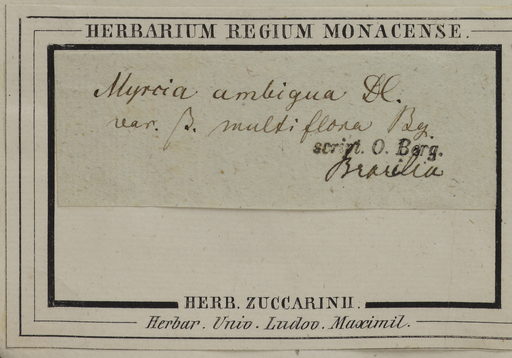 HERBARIUM REGIUM MONACENSE.
Myrcia ambigua DC.
var. β. multiflora Bg.
script. O. Berg.
Brasilia
HERB. ZUCCARINII.
Herbar. Univ. Ludov. Maximil.